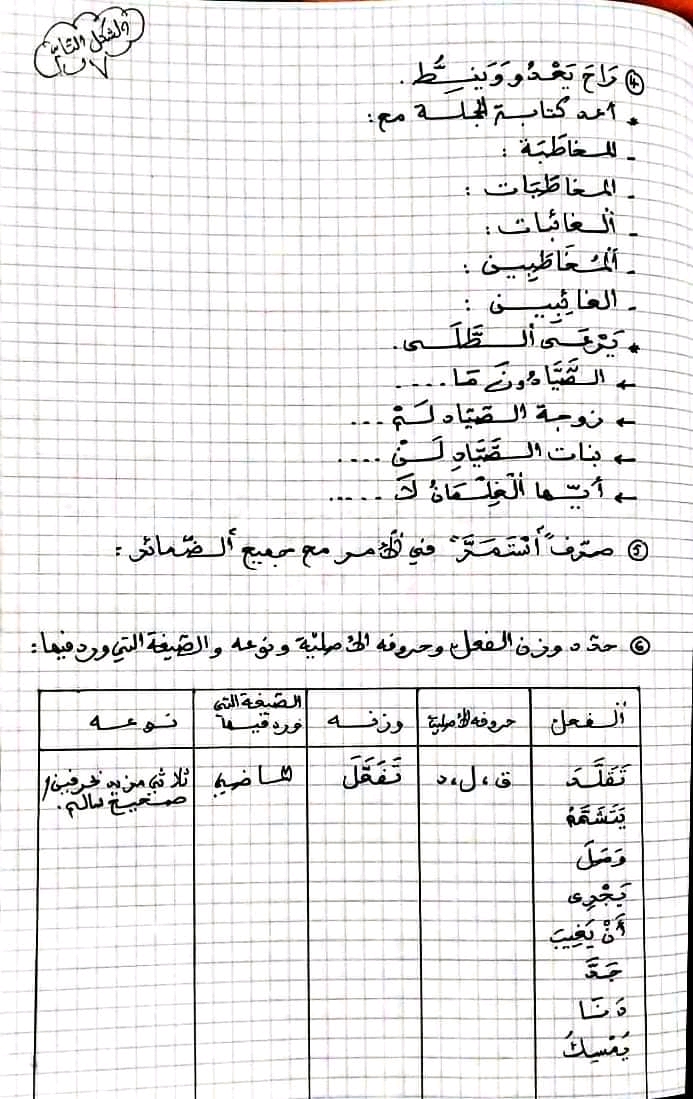 الشكل التام
④ رَاحَ يَعْدُو وَيَنِطُّ.
* أعد كتابة الجملة مع:
- المخاطَبَة :
- المخاطَبَات :
- ألغائبات :
- ألمُخَاطَبِين :
- الغائِبِين :
* يَرْعَى ألطَّلَى.
← الصَّيَّادُونَ مَا ....
← زوجة الصَّيَّاد لَمْ ...
← بنات الصَّيَّادِ لَنْ ....
← أيّها ألْغِلْمَانُ لَا .....
⑤ صرّف "أسْتَمَرَّ" في الأمر مع جميع ألضّمائر :
⑥ حدّد وزن الفعل وحروفه الأصليّة ونوعه والصّيغة التي ورد فيها:
ألفعل حروفه الأصلية وزنه الصّيغة التي ورد فيها نوعه
تَقَلَّدَ ق، ل، د تَفَعَّلَ الماضي ثلاثي مزيد بحرفين/ صحيح سالم.
يَتَشَمَّمُ
وَصَلَ
يَجْرِي
أَنْ يَغِيبَ
جَدَّ
دَنَا
يُمْسِكُ